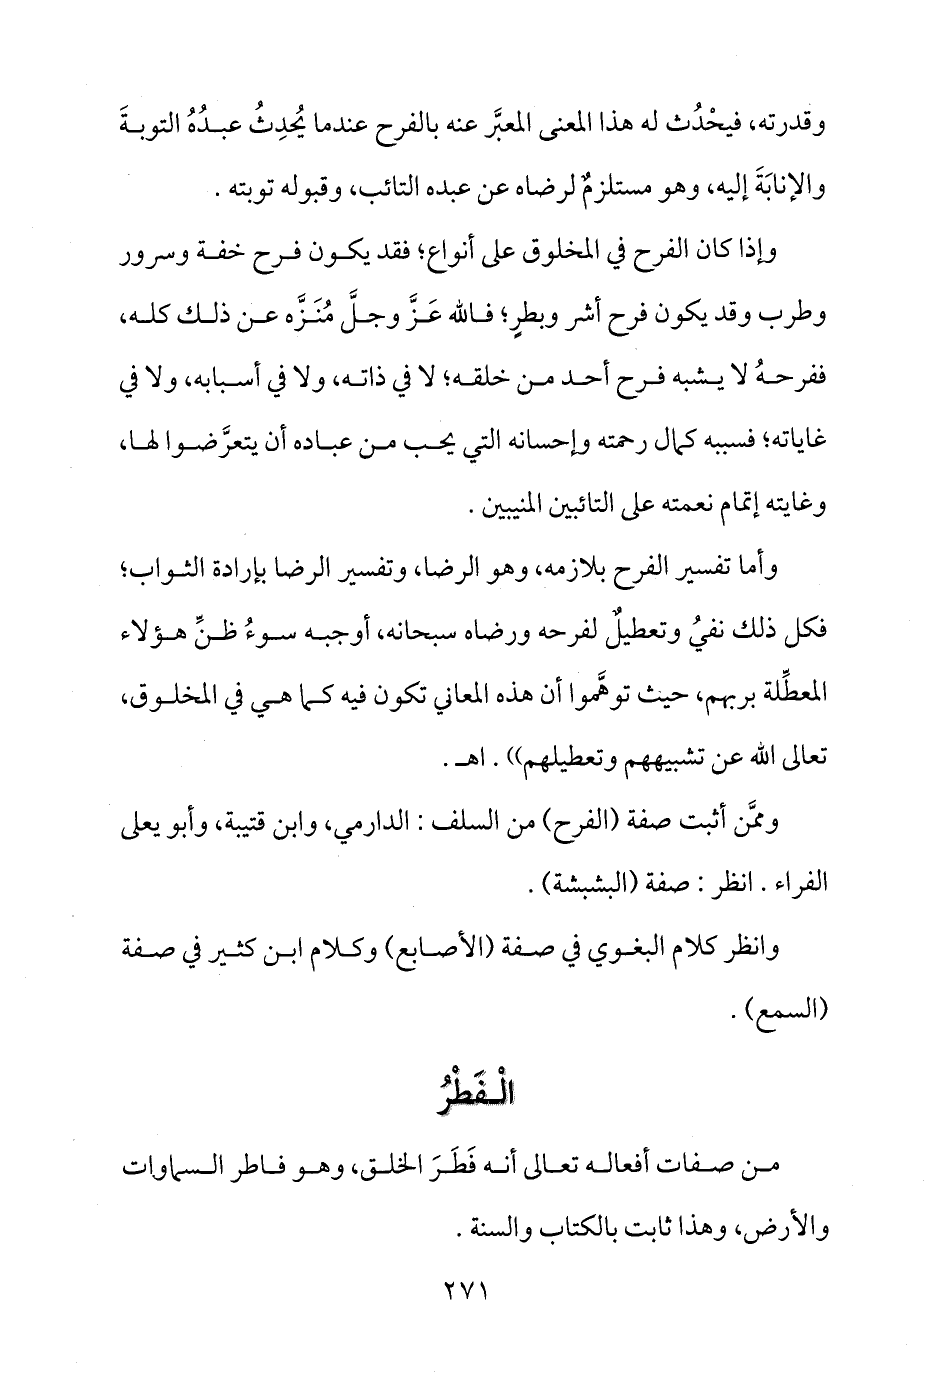 وقدرته، فيحْدُث له هذا المعنى المعبَّر عنه بالفرح عندما يُحدِثُ عبدُهُ التوبةَ
والإنابَةَ إليه، وهو مستلزمٌ لرضاه عن عبده التائب، وقبوله توبته .
وإذا كان الفرح في المخلوق على أنواع؛ فقد يكون فرح خفة وسرور
وطرب وقد يكون فرح أشر وبطرٍ؛ فالله عَزَّ وجلَّ مُنَزَّه عن ذلك كله،
ففرحهُ لا يشبه فرح أحد من خلقه؛ لا في ذاته، ولا في أسبابه، ولا في
غاياته؛ فسببه كمال رحمته وإحسانه التي يحب من عباده أن يتعرَّضوا لها،
وغايته إتمام نعمته على التائبين المنيبين .
وأما تفسير الفرح بلازمه، وهو الرضا، وتفسير الرضا بإرادة الثواب؛
فكل ذلك نفيُ وتعطيلٌ لفرحه ورضاه سبحانه، أوجبه سوءُ ظنِّ هؤلاء
المعطِّلة بربهم، حيث توهَّموا أن هذه المعاني تكون فيه كما هي في المخلوق،
تعالى الله عن تشبيههم وتعطيلهم)) . اهـ .
وممَّن أثبت صفة (الفرح) من السلف : الدارمي، وابن قتيبة، وأبو يعلى
الفراء . انظر : صفة (البشبشة) .
وانظر كلام البغوي في صفة (الأصابع) وكلام ابن كثير في صفة
(السمع) .
الْفَطْرُ
من صفات أفعاله تعالى أنه فَطَرَ الخلق، وهو فاطر السماوات
والأرض، وهذا ثابت بالكتاب والسنة .
٢٧١